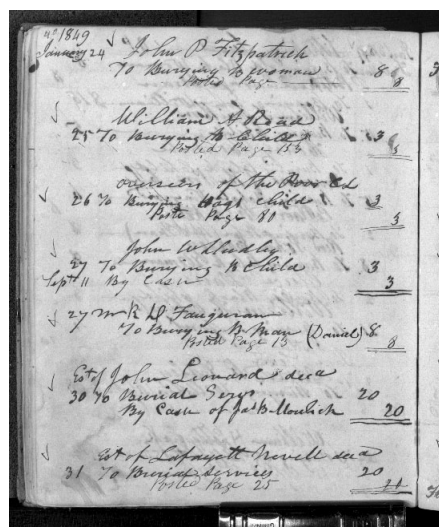 1849
January 24 John P Fitzpatrick
To Burying B woman 8
Posted Page 8
William A Road
25 To Burying B Child 3
Posted Page 153 3
overseers of the Poor
26 To Burying child 3
Posted Page 80 3
John W
27 To Burying B Child 3
Sept 11 By Cash 3
27 Mr R D
To Burying B Man (Daniel) 8
Posted Page 13 8
Est of John Leonard decd
30 To Burial Servs 20
By Cash of Jas B 20
Est of Lafayett Nevell decd
31 To Burial Services 20
Posted Page 25